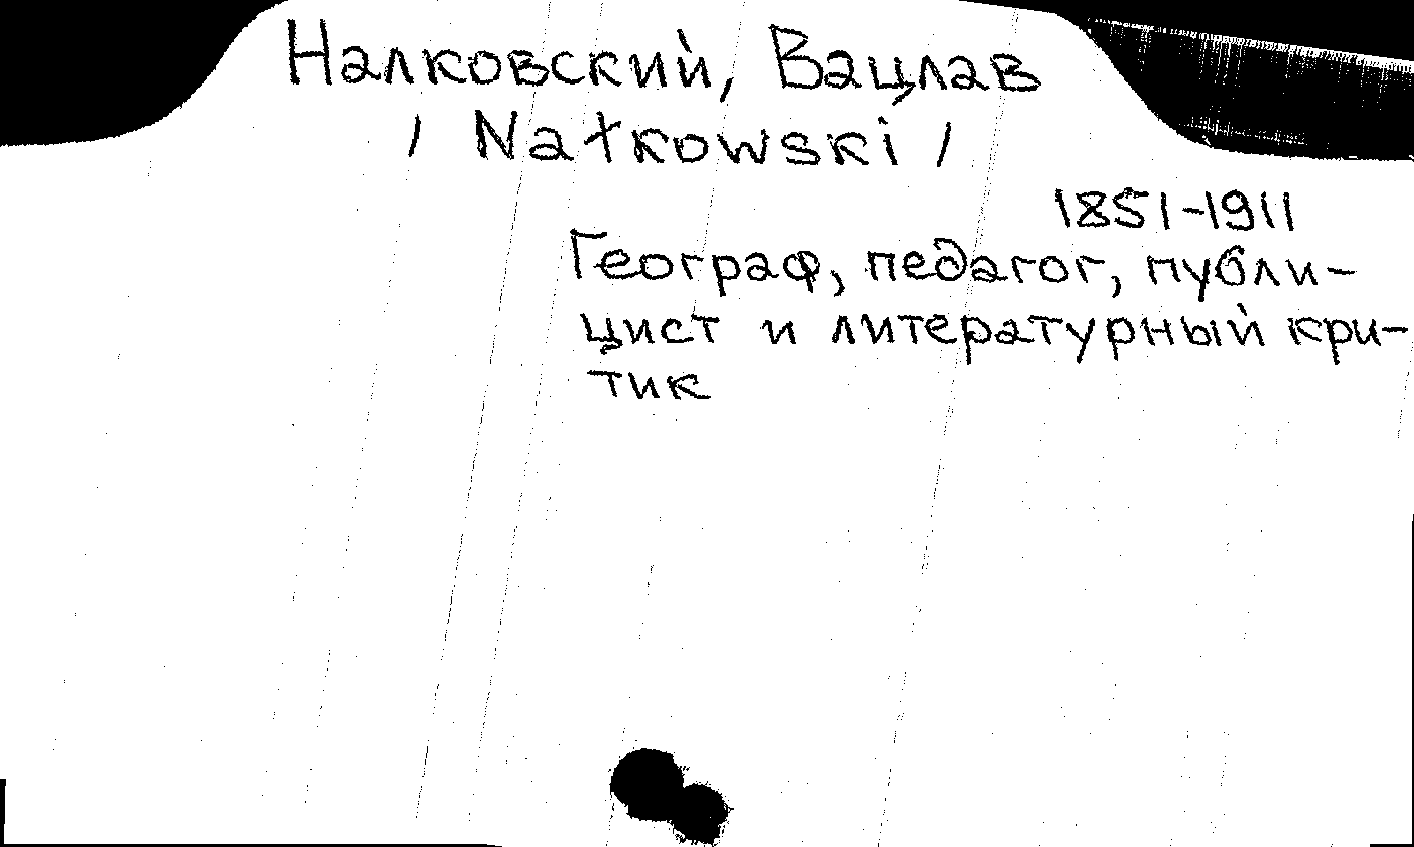 Налковский, Вацлав
/ Nałkowski /
1851-1911
Географ, педагог, публи-
цист и литературный кри-
тик